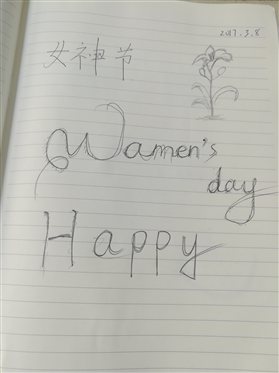 2017.3.8
女神节
Wamen's
day
Happy